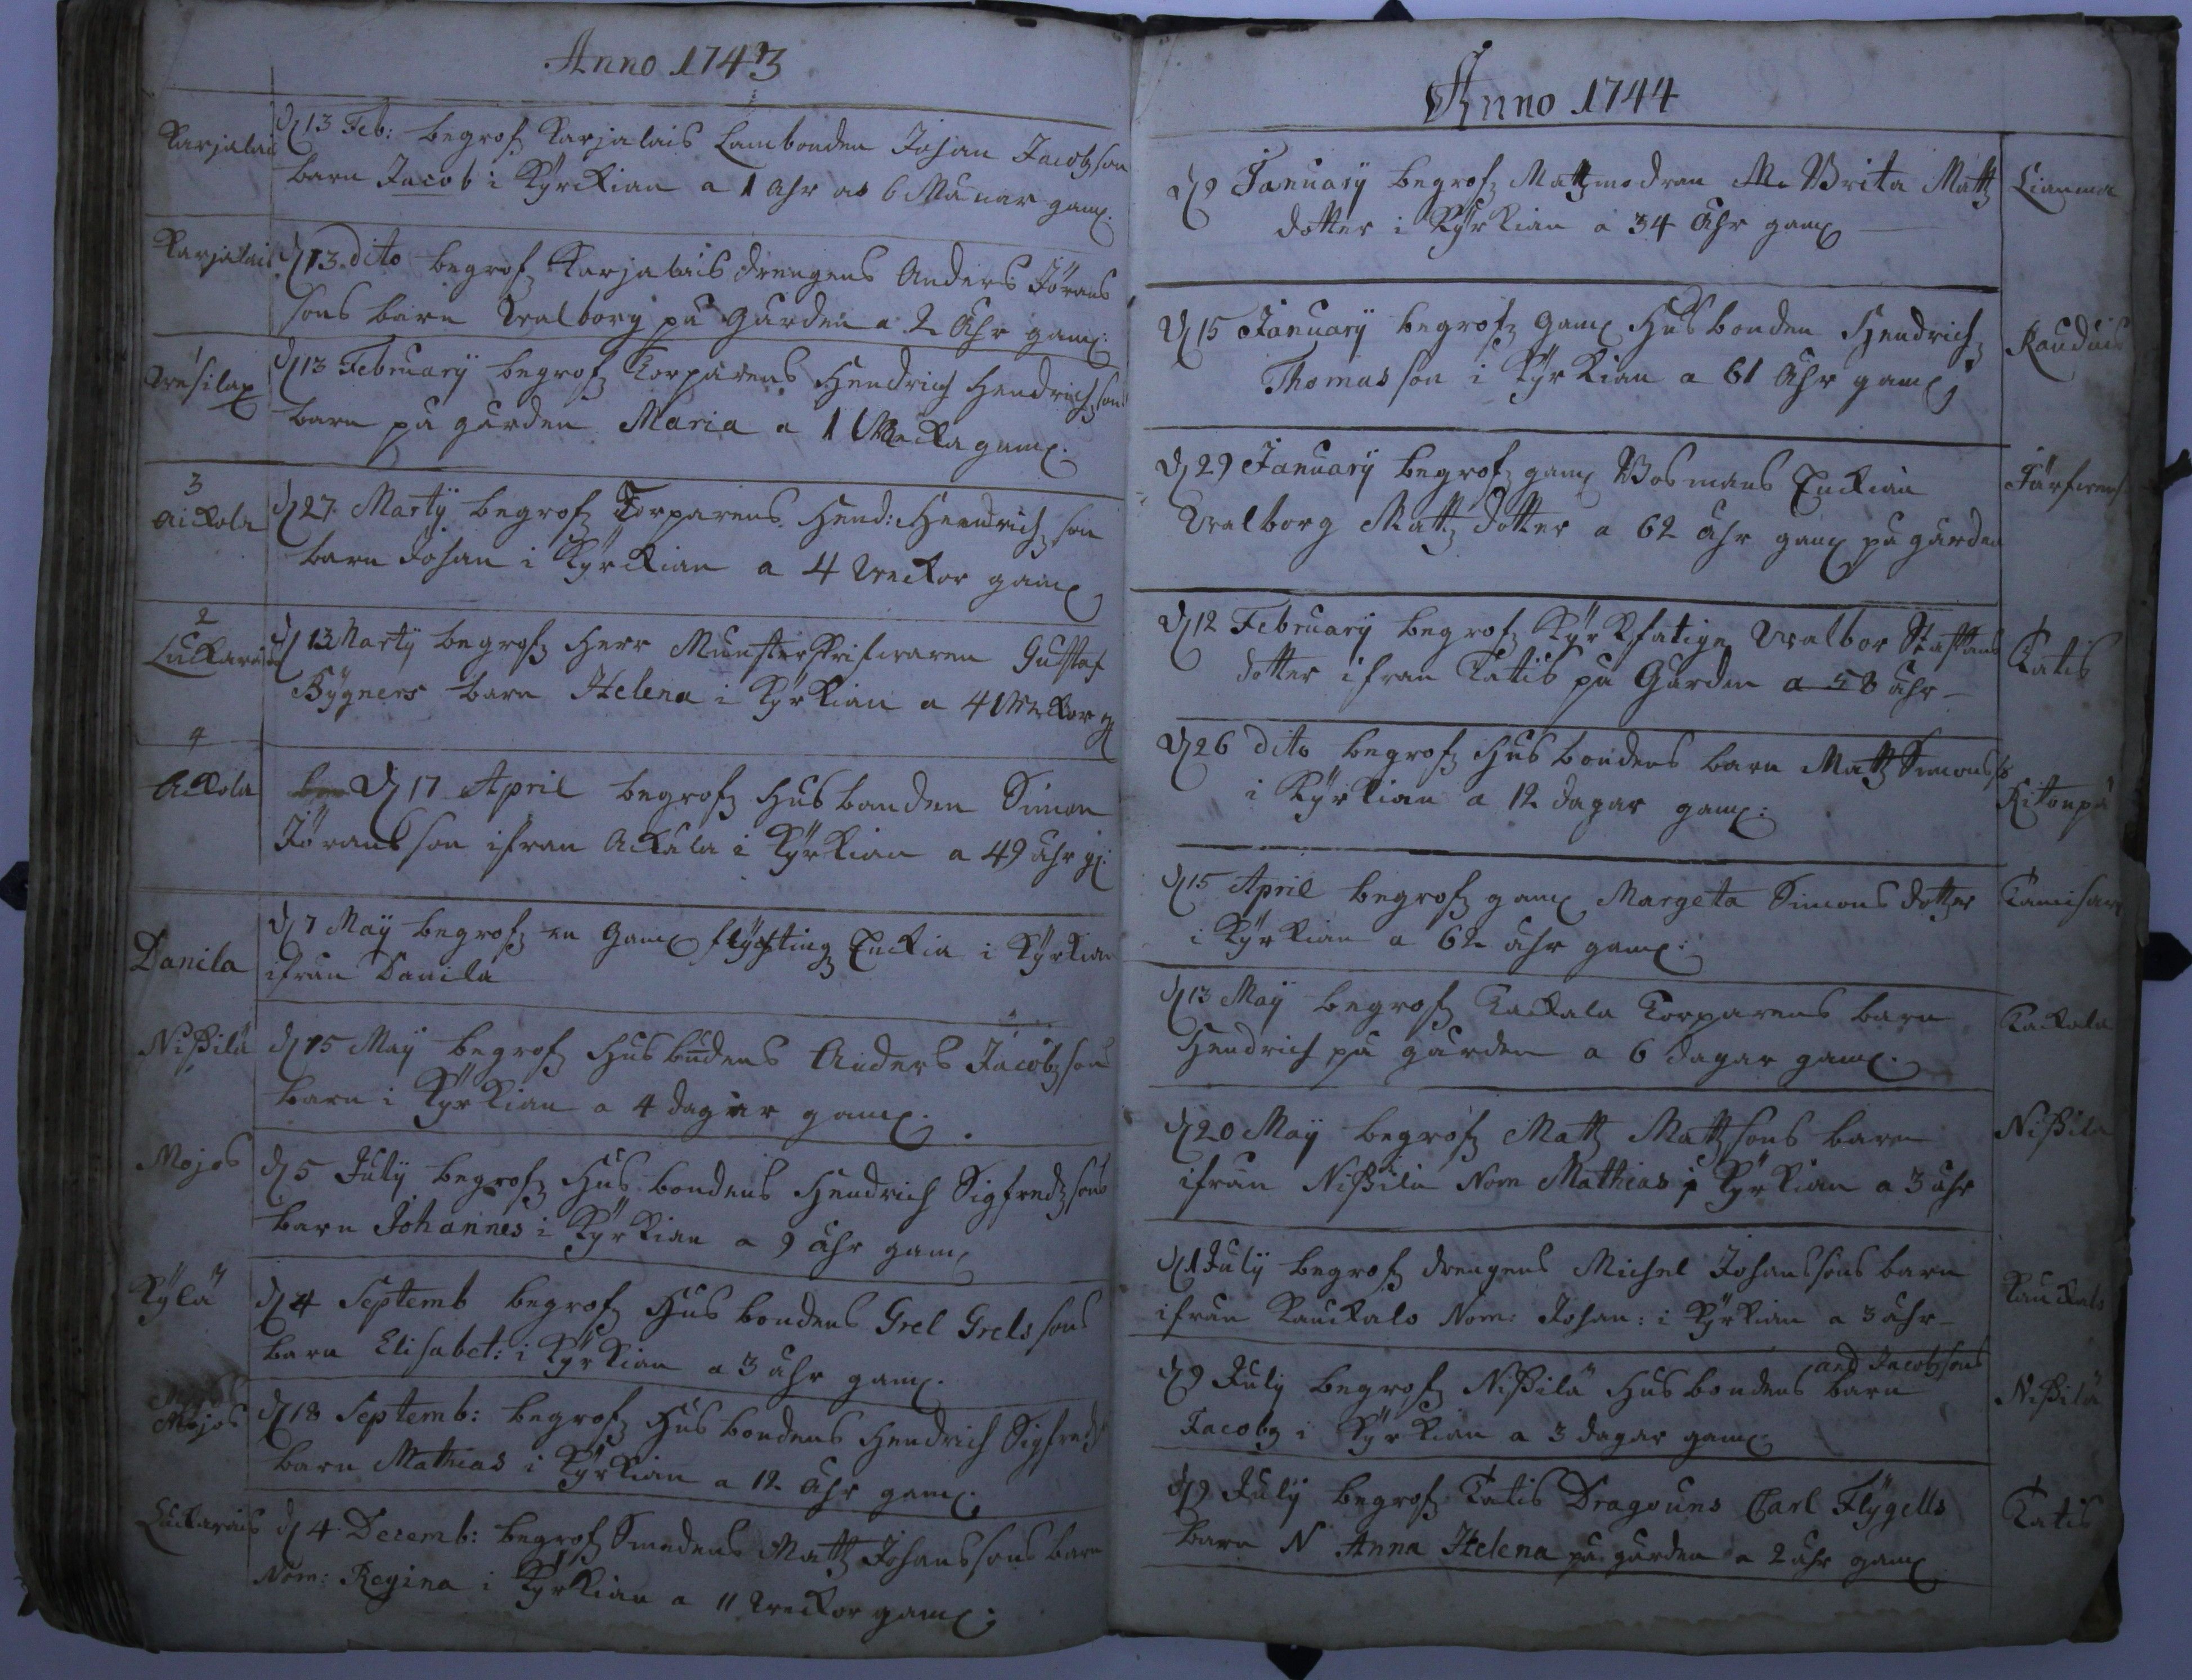 Anno 1743
Karjalais
d 13 Feb: begrofz Karjalais Lambonden Johan Jacobz son
barn Jacob i Kyrckian a 1 ahr as 6 Månar gam.
Karjalais
d 13 dito begrofz Karjalais drengens Anders Jörans
sons barn Walborg på Garden a 2 Åhr gam:
1
d 13 February begrofz Torparens Hendrich Hendrichson
barn på gården Maria a 1 Wecka gam:
3
Aickola
d 27 Marty begrofz Torparens Hend: Hendrich son
barn Johan i Kyrckian a 4 Weckor gam
2
Luckarais
d 13 Marty begrofz Herr Munsterskrifwaren Gustaf
Bygners barn Helena i Kyrkian a 4 Weckor g
4
Ackola
d 17 April begrofz Husbanden Simon
Jöransson ifran Ackala i Kyrkian a 49 åhr g:
Danila
d 7 May begrofz en Gam flychting Enckia i Kyrkian
ifrån Danila
Nißilä
d 15 May begrofz Husbudens Anders Jacobz son
barn i Kyrkian a 4 dagar gam:
Mojos
d 5 July begrofz Husbondens Hendrich Sigfredz sons
barn Johannes i Kyrkian a 9 åhr gam
Kylä
d 4 Septemb begrofz Husbondens Grel Grels sons
barn Elisabet: i Kyrkian a 3 åhr gam.
Mojos
d 18 Septemb: begrofz Husbondens Hendrich Sigfredz
barn Mathias i Kyrkian a 12 åhr gam:
Luckarais
d 4 Decemb: begrofz Smedens Mattz Johanssons barn
Nom: Regina i Kyrkian a 11 Weckor gam:
Anno 1744
d 9 January begrofz Mattzmodran Brita Mattz
dotter i Kyrkian a 34 Åhr gam
Lianma
d 15 January begrofz Gam Husbonden Hendrich
Thomas son i Kyrkian a 61 Åhr gam
Rauduis
d 29 January begrofz gam Bosmans Enckian
Walborg Mattz dotter a 62 åhr gam på gården
d 12 February begrofz Kyrkfatige Walbor Staffans
dotter ifran Tatis på Garden a 58 åhr
Tatis
d 26 dito begrofz Husbondens barn Mattz Simons
i Kyrkian a 12 dagar gam:
Kitonpä
d 15 April begrofz gam Margeta Simons dotter
i Kyrkian a 62 åhr gam:
d 13 May begrofz Tackala Torparens barn
Hendrich på gården a 6 dagar gam:
Tackala
d 20 May begrofz Mattz Mattzsons barn
ifrån Nißilä Nom Mathias i Kyrkian a 3 åhr
Nißilä
d 1 July begrofz drengens Michel Johanssons barn
ifrån Kauckalo Nom: Johan: i Kyrkian a 3 åhr
Kauckalo
and Jacobz sons
d 9 July begrofz Nißilä Husbondens barn
Jacobz i Kyrkian a 3 dagar gam
Nißilä
d 9 July begrofz Tatis Dragouns Carl Flygells
barn N Anna Helena på gården a 2 åhr gam
Tatis